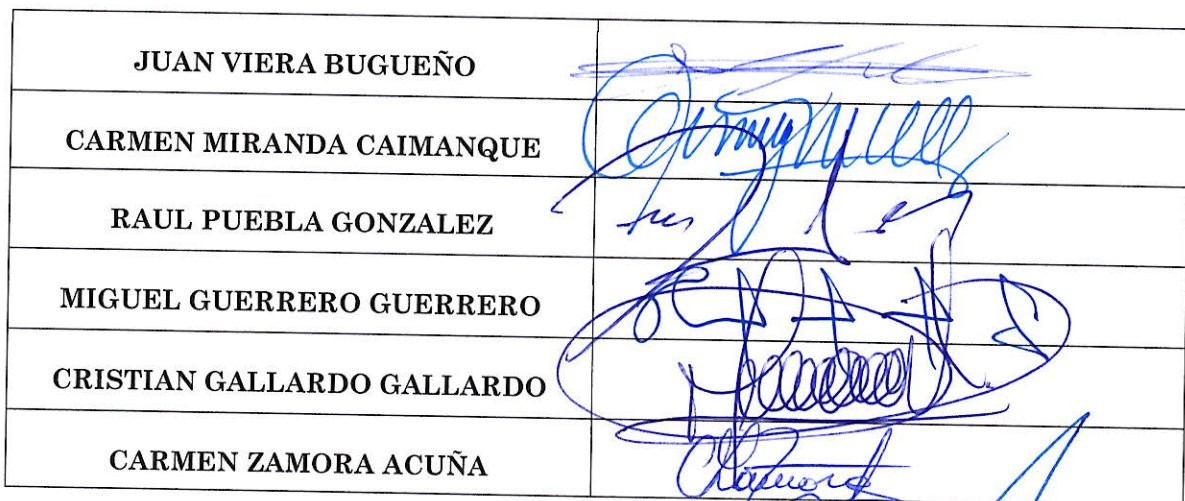 JUAN VIERA BUGUEÑO
CARMEN MIRANDA CAIMANQUE
RAUL PUEBLA GONZALEZ
MIGUEL GUERRERO GUERRERO
CRISTIAN GALLARDO GALLARDO
CARMEN ZAMORA ACUÑA